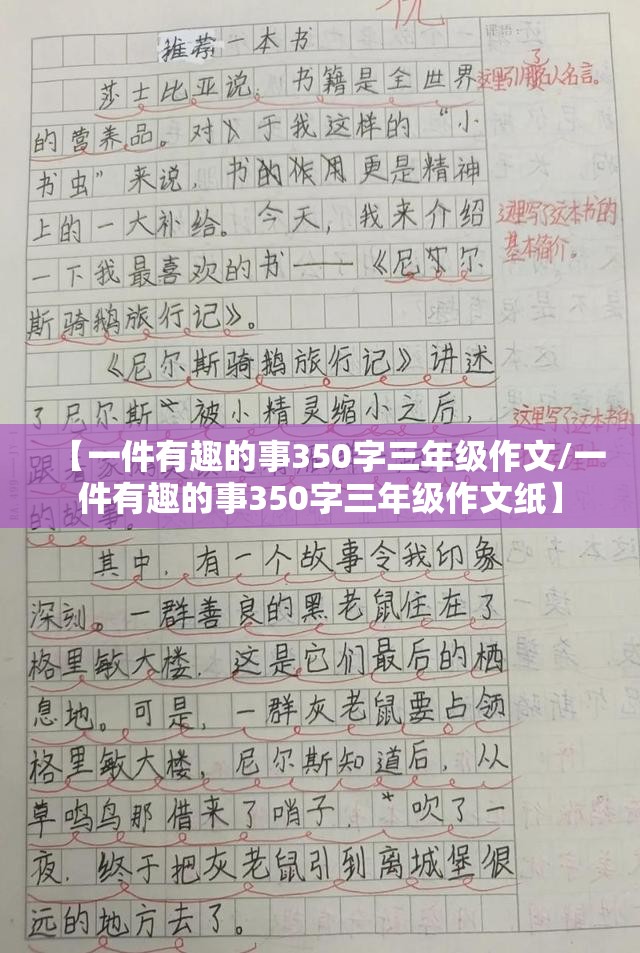 优
推荐一本书
莎士比亚说：书籍是全世界
的营养品。对于我这样的“小
书虫”来说，书的作用更是精神
上的一大补给。今天，我来介绍
一下我最喜欢的书——《尼尔
斯骑鹅旅行记》。
《尼尔斯骑鹅旅行记》讲述
了尼尔斯被小精灵缩小之后，
的故事。
其中，有一个故事令我印象
深刻。一群善良的黑老鼠住在了
格里敏大楼，这是它们最后的栖
息地。可是，一群灰老鼠要占领
格里敏大楼，尼尔斯知道后，从
草鸣鸟那借来了哨子，吹了一
夜，终于把灰老鼠引到离城堡很
远的地方去了。
这里引用了名人名言。
这里写了这本书的
基本简介。
这里写了这本书的
【一件有趣的事350字三年级作文/一
件有趣的事350字三年级作文纸】